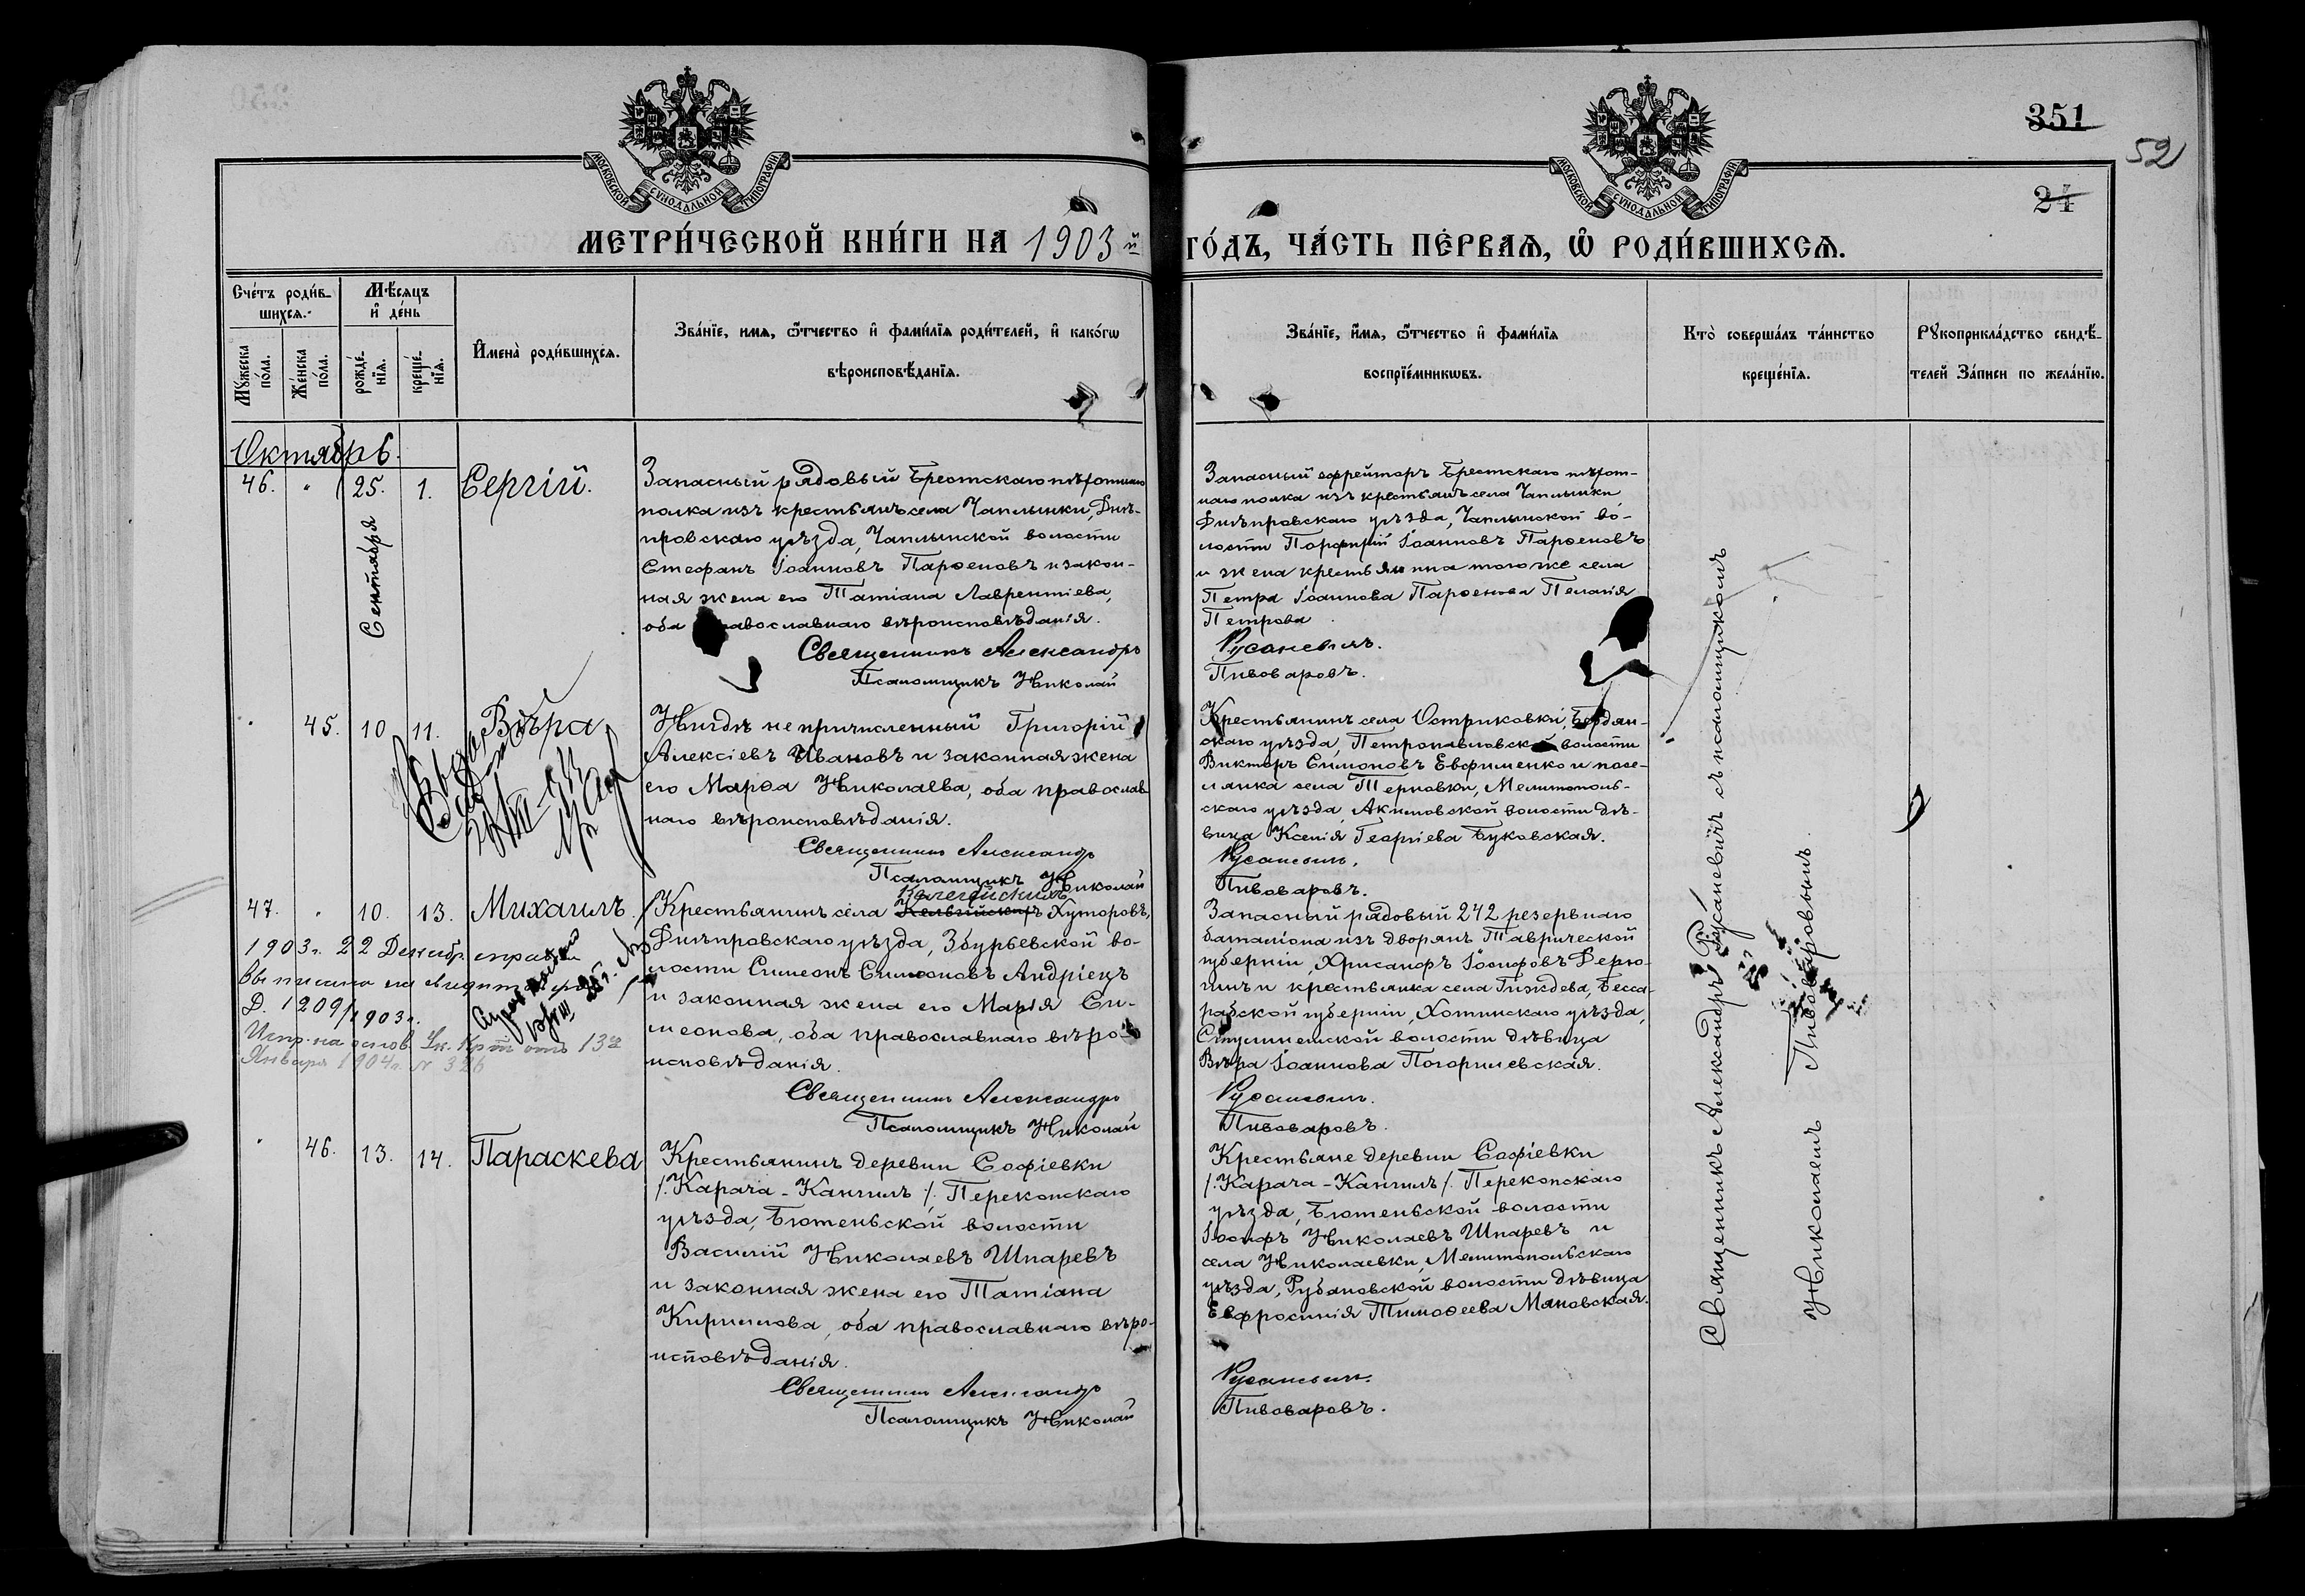 351
52
24
МОСКОВСКОЙ СѴНОДАЛЬНОЙ ТИПОГРАФІИ
МОСКОВСКОЙ СѴНОДАЛЬНОЙ ТИПОГРАФІИ
МЕТРИ́ЧЕСКОЙ КНИ́ГИ НА 1903й ГО́ДЪ, ЧА́СТЬ ПЕ́РВАѦ, Ѿ РОДИ́ВШИХСѦ.
Сче́тъ роди́в-
шихсѧ.
Мѣ́сѧцъ
и҆ де́нь
Мꙋ́жеска по́ла.
Же́нска по́ла.
рожде́-
нїѧ.
креще́-
нїѧ.
И҆мена̀ роди́вшихсѧ.
Зва́нїе, имѧ, ѻ҆́тчество и҆ фами́лїѧ роди́телей, и҆ како́гѡ
вѣроисповѣ́данїѧ.
Зва́нїе, и҆́мѧ, ѻ҆́тчество и҆ фами́лїѧ
воспрїе́мникѡвъ.
Кто̀ соверша́лъ та́инство
креще́нїѧ.
Рꙋкоприкла́дство свидѣ́-
телей За́писи по жела́нїю.
Октябрь.
46. " 25. 1. Сергій.
Сентября
Запасный рядовый Брестскаго пѣхотнаго
полка изъ крестьянъ села Чаплынки, Днѣ-
провскаго уѣзда, Чаплынской волости
Стефанъ Іоанновъ Парѳеновъ и закон-
ная жена его Татіана Лаврентіева,
оба православнаго вѣроисповѣданія.
Священникъ Александръ
Псаломщикъ Николай
Запасный ефрейторъ Брестскаго пѣхот-
наго полка изъ крестьянъ села Чаплынки
Днѣпровскаго уѣзда, Чаплынской во-
лости Порфирій Іоанновъ Парѳеновъ
и жена крестьянина того же села
Петра Іоаннова Парѳенова Пелагія
Петрова
Русаневичъ.
Пивоваровъ.
" 45. 10 11. Вѣра
Нигдѣ не причисленный Григорій
Алексіевъ Ивановъ и законная жена
его Марѳа Николаева, оба православ
наго вѣроисповѣданія.
Священникъ Александръ
Псаломщикъ Николай
Крестьянинъ села Остриковки, Бердян-
скаго уѣзда, Петропавловской волости
Викторъ Симоновъ Евфименко и посе-
лянка села Терновки, Мелитополь-
скаго уѣзда, Акимовской волости дѣ-
вица Ксенія Георгіева Буковская.
Русаневичъ.
Пивоваровъ.
47. " 10. 13. Михаилъ.
1903г. 22 Декабр.
Д. 1209/1903г.
Испр. на основ. Ук. от 13го
Января 1904г. № 326
Крестьянинъ села Келегейскихъ Хуторовъ,
Днѣпровскаго уѣзда, Збурьевской во-
лости Симеонъ Симеоновъ Андріецъ
и законная жена его Марія Си-
меонова, оба православнаго вѣро-
исповѣданія.
Священникъ Александръ
Псаломщикъ Николай
Запасный рядовый 242 резервнаго
баталіона изъ дворянъ Таврической
губерніи, Хрисанфъ Іосифовъ Дерю-
гинъ и крестьянка села Гиждева, Бесса-
рабской губерніи, Хотинскаго уѣзда,
волости дѣвица
Вѣра Іоаннова Погорилевская.
Русаневичъ.
Пивоваровъ.
" 46. 13. 14. Параскева
Крестьянинъ деревни Софіевки
/. Карача-Кангилъ /. Перекопскаго
уѣзда, Бютеньской волости
Василій Николаевъ Шпаревъ
и законная жена его Татіана
Кириллова, оба православнаго вѣро-
исповѣданія.
Священникъ Александръ
Псаломщикъ Николай
Крестьяне деревни Софіевки
/. Карача-Кангилъ /. Перекопскаго
уѣзда, Бютеньской волости
Іосифъ Николаевъ Шпаревъ и
села Николаевки, Мелитопольскаго
уѣзда, Рубановской волости дѣвица
Евфросинія Тимоѳеева Маковская.
Русаневичъ.
Пивоваровъ.
Священникъ Александръ Русаневичъ съ псаломщикомъ
Николаемъ Пивоваровымъ.